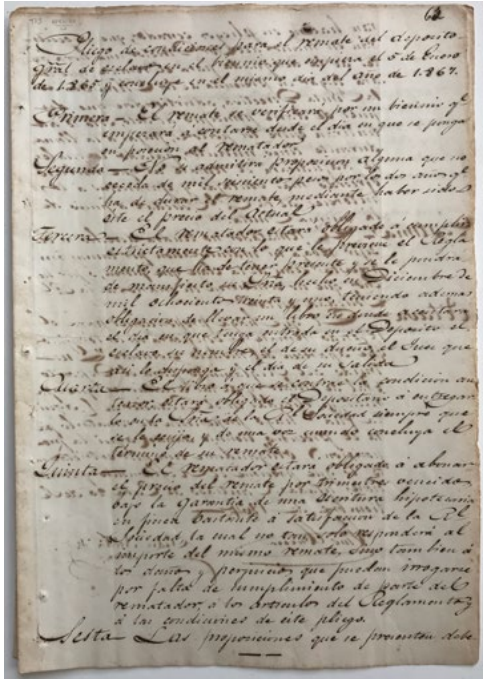 62
Pliego de condiciones para el remate del deposito
gral de esclavos en el bienio que empieza el 5 de Enero
de 1.865 y concluye en el mismo dia del año de 1.867.
Primera — El remate se verificará por un bienio qe
empezará a contarse desde el dia en que se ponga
en posesion al rematador.
Segundo — No se admitirá proposicion alguna que no
esceda de mil pesos por los dos años qe
ha de durar el remate, mediante haber sido
este el precio del actual
Tercera — El rematador estará obligado á cumplir
estrictamente con lo que le previene el Regla
mento que ha de tener presente y se le pondrá
de manifiesto su fha hecho en Diciembre de
mil ochocientos treinta y teniendo ademas
obligacion de llevar un libro donde
el dia en que tenga entrada en el Deposito el
esclavo su nombre, el de su dueño, el Juez que
asi lo disponga y el dia de su salida
Cuarta — El libro á que se contrae la condicion an
terior, estará obligado el Depositario á entregar
lo á la de la Rl Sociedad siempre que
se le exija y de una vez cuando concluya el
término de su remate.
Quinta — El rematador estará obligado á abonar
el precio del remate por trimestres vencidos
bajo la garantia de una escritura hipotecaria
en finca bastante á satisfaccion de la Rl
Sociedad, la cual no tan solo responderá al
importe del mismo remate, sino tambien á
los daños y perjuicios que puedan irrogarse
por falta de cumplimiento de parte del
rematador, á los articulos del Reglamento y
á las condiciones de este pliego.
Sesta — Las proposiciones que se presenten debe